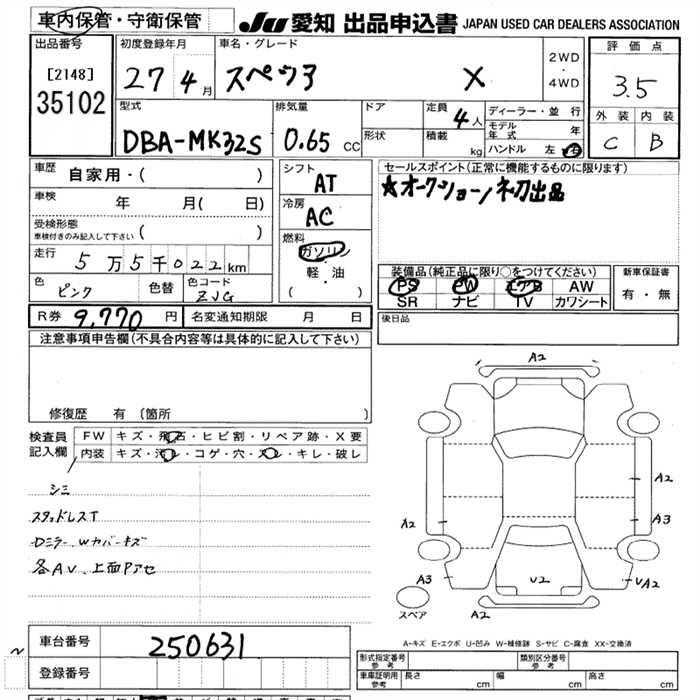 車内保管・守衛保管
JU 愛知 出品申込書 JAPAN USED CAR DEALERS ASSOCIATION
出品番号
[2148]
35102
初度登録年月
27 4月
車名・グレード
スペーシア X
2WD
・
4WD
評価点
3.5
外装 内装
C B
型式
DBA-MK32S
排気量
0.65 CC
ドア
形状
定員 4人
積載 kg
ディーラー・並行
モデル年式 年
ハンドル 左 右
車歴 自家用・( )
車検 年 月( 日)
受検形態
車検付きのみ記入して下さい ( )
走行 5万5千022km
色 ピンク 色替 色コード ZJG
シフト AT
冷房 AC
燃料
ガソリン
軽・油
( )
セールスポイント(正常に機能するものに限ります)
★オークション初出品
装備品(純正品に限り○をつけてください)
PS PW エアB AW
SR ナビ TV カワシート
新車保証書
有・無
R券 9,770円 名変通知期限 月 日
後日品
注意事項申告欄(不具合内容等は具体的に記入して下さい)
修復歴 有(箇所 )
検査員
記入欄
FW キズ・飛石・ヒビ割・リペア跡・X要
内装 キズ・汚レ・コゲ・穴・スレ・キレ・破レ
シミ
スタッドレスT
Dミラー、Wカバーキズ
各AV、上面Pアセ
A2
A2
A3
A2
A3
U2
UA2
スペア
A2
A-キズ E-エクボ U-凹み W-補修跡 S-サビ C-腐食 XX-交換済
車台番号 250631
登録番号
形式指定番号
参考
類別区分番号
参考
車庫証明用
参考
長さ cm 幅 cm 高さ cm